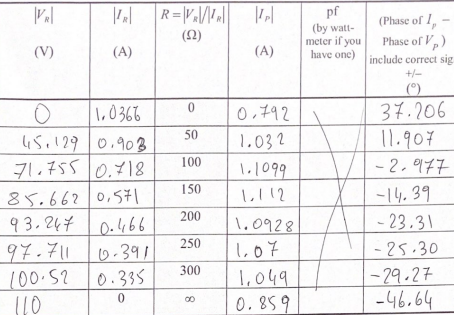 |V_R| (V) |I_R| (A) R = |V_R|/|I_R| (Ω) |I_P| (A) pf (by watt-meter if you have one) (Phase of I_p – Phase of V_p) include correct sig +/– (°)
0 1.0366 0 0.792 37.206
45.129 0.903 50 1.032 11.907
71.755 0.718 100 1.1099 -2.977
85.662 0.571 150 1.112 -14.39
93.247 0.466 200 1.0928 -23.31
97.711 0.391 250 1.07 -25.30
100.52 0.335 300 1.049 -29.27
110 0 ∞ 0.859 -46.64